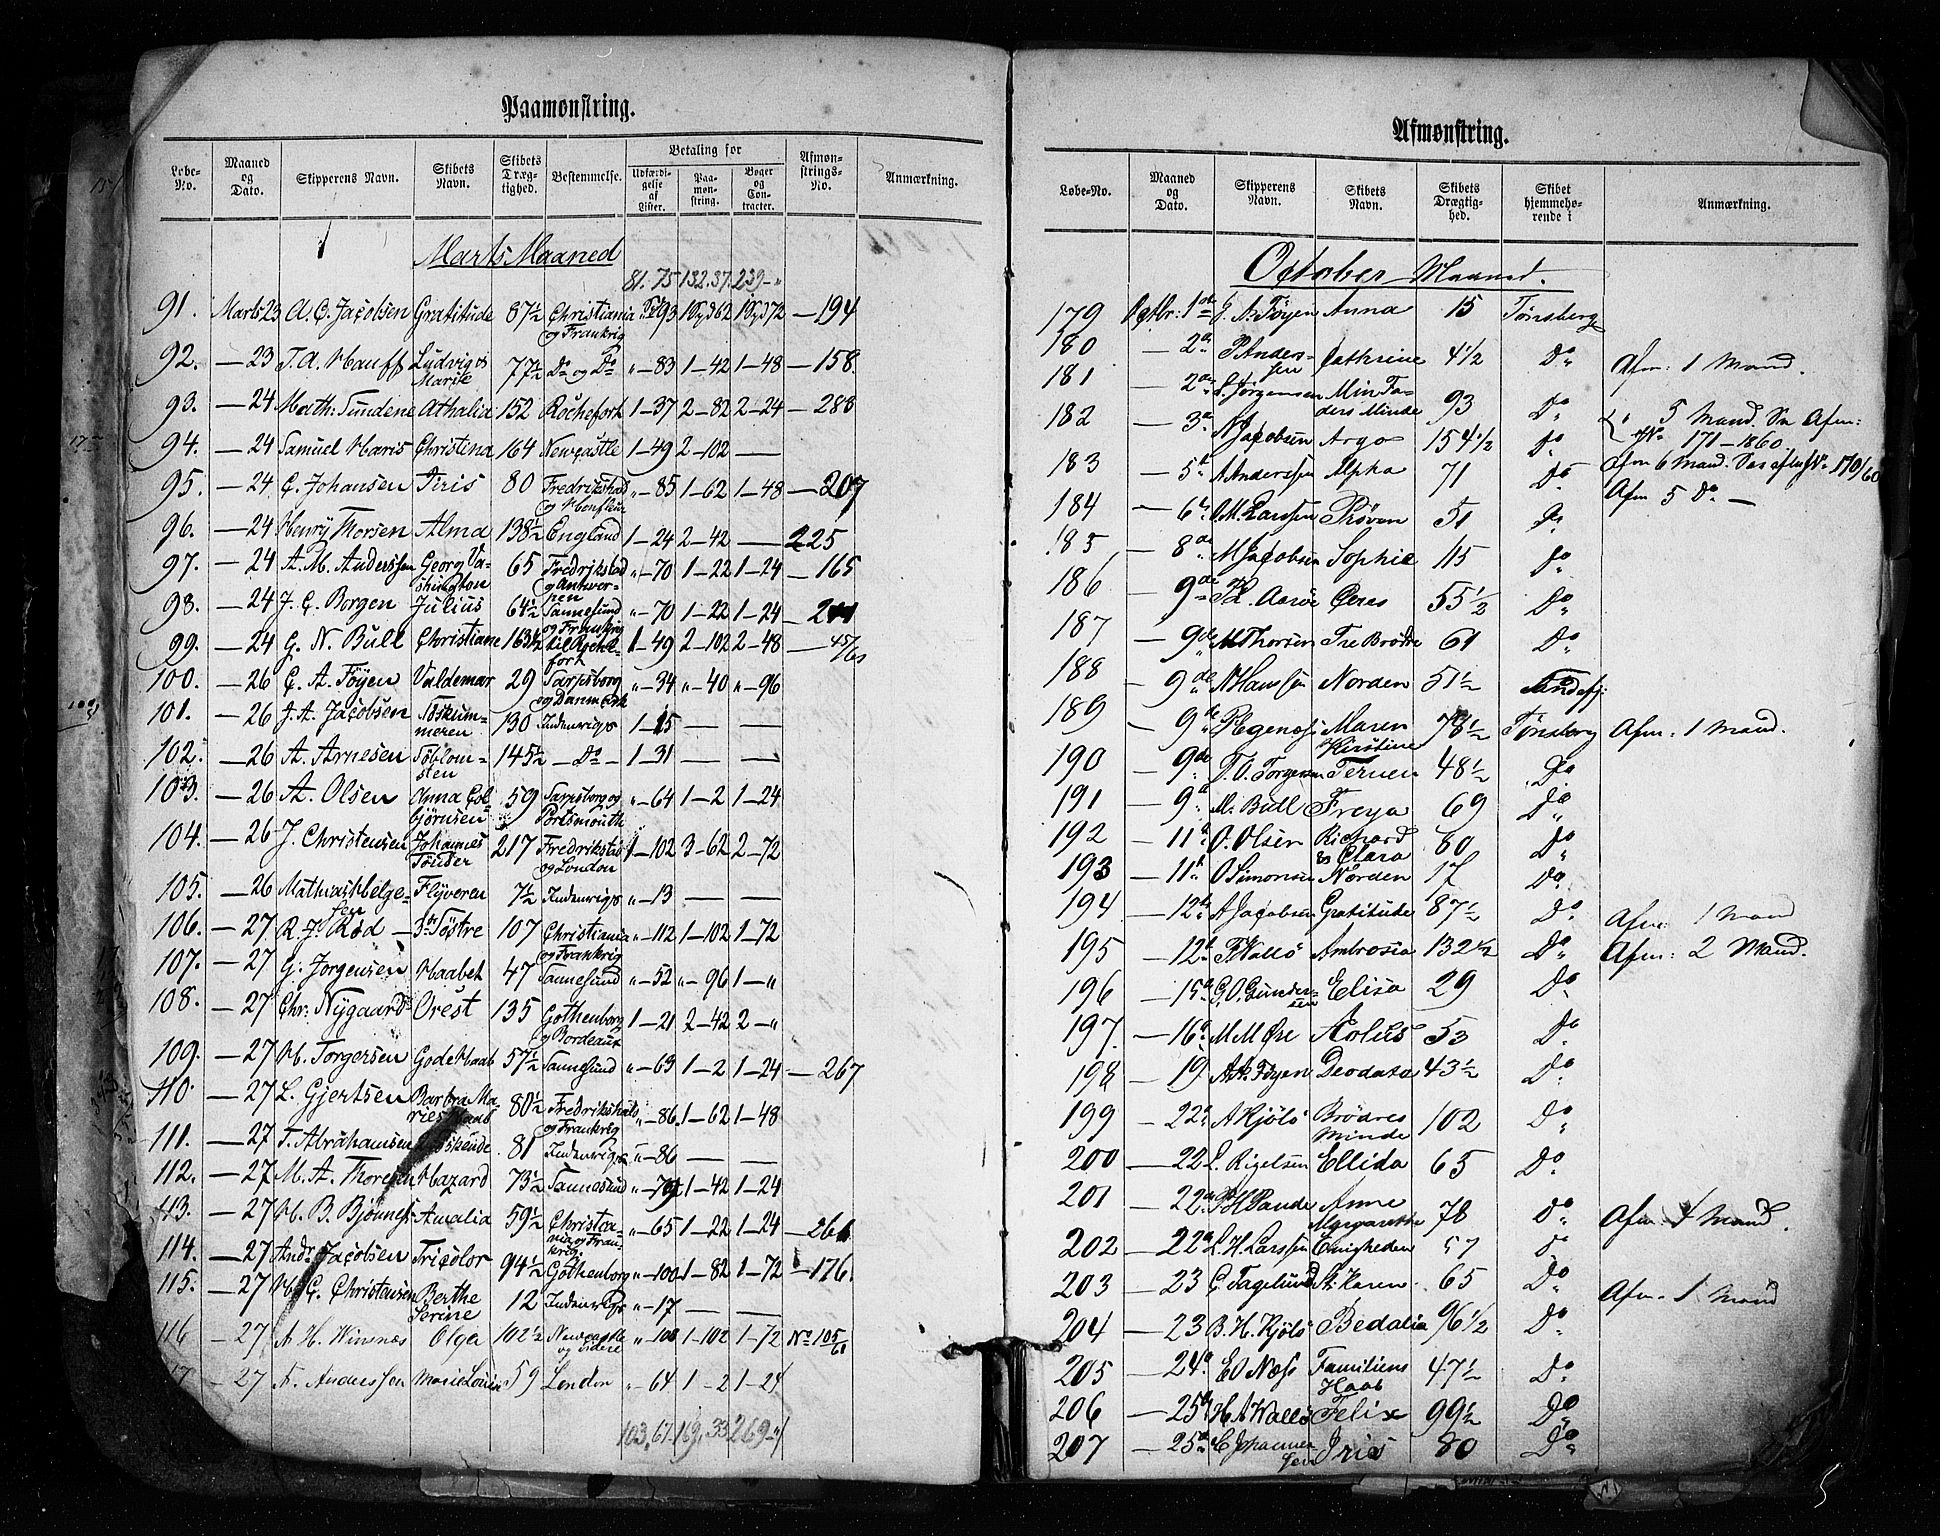 Paamønstring.
Løbe-No. Maaned og Dato. Skipperens Navn. Skibets Navn. Skibets Dræg-tighed. Bestemmelse. Betaling for Udfærdi-gelse af Lister. Paa-møn-string. Bøger og Con-tracter. Afmøn-strings-No. Anmærkning.
Marts Maaned
81. 75 132. 37. 239 - "
91. Marts 23 A. C. Jacobsen Gratitude 87½ Christiania og Frankrig 93 1 62 1 72 — 194
92. — 23 T. A. Hauff Ludvig & Marie 77½ Do og Do " — 83 1 — 42 1 — 48 — 158.
93. — 24 Math: Sundene Athalia 152 Rochefort 1 — 37 2 — 82 2 — 24 — 288
94. — 24 Samuel Haris Christina 164 Newcastle 1 — 49 2 — 102 —
95. — 24 C. Johansen Iris 80 Fredrikshald og Honfleur " — 85 1 — 62 1 — 48 — 207
96. — 24 Henry Thorsen Alma 138½ England 1 — 24 2 — 42 — 225
97. — 24 A. M. Anderssen Georg Vashington 65 Fredrikstad og Antwerpen " — 70 1 — 22 1 — 24 — 165
98. — 24 J. C. Borgen Julius 64½ Sannesund og Frankrig " — 70 1 — 22 1 — 24 — 201
99. — 24 G. N. Bull Christiane 163½ til Rochefort 1 — 49 2 — 102 2 — 48 — 45/61
100. — 26 C. A. Föyen Valdemar 29 Sarpsborg og Danmark " — 34 " — 40 " — 96
101. — 26 J. A. Jacobsen Nöskummeren 130 Indenrigs 1 — 15 — —
102. — 26 A. Arnesen Söblomsten 145½ — Do — 1 — 31 — —
103. — 26 A. Olsen Anna Colbjörnsen 59 Sarpsborg og Portsmouth " — 64 1 — 2 1 — 24
104. — 26 J. Christensen Johannes Tönder 217 Fredrikstad og London 1 — 102 3 — 62 2 — 72
105. — 26 Mathias Helgesen Flyveren 7½ Indenrigs " — 13 — —
106. — 27 R. J. Röd 3de Söstre 107 Christiania og Frankrig " — 112 1 — 102 1 — 72
107. — 27 G. Jorgensen Haabet 47 Sannesund " — 52 " — 96 1 — "
108. — 27 Chr: Nygaard Orest 135 Gothenborg og Bordeaux 1 — 21 2 — 42 2 — "
109. — 27 H. Torgersen Gode Haab 57½ Sannesund " — 63 1 — 2 1 — 24 — 267
110 — 27 L. Gjertsen Barbra Maries Haab 80½ Fredrikshald og Frankrig " — 86. 1 — 62 1 — 48
111. — 27 T. Abrahamsen 81 Indenrigs " — 86 — —
112. — 27 M. A. Thoresen Hazard 73½ Sannesund " — 79 1 — 42 1 — 24
113. — 27 H. B. Bjönnes Amalia 59½ Christiania og Frankrig. " — 65 1 — 22 1 — 24 — 261
114. — 27 Andr. Jacobsen Tricolor 94½ Gothenborg " — 100 1 — 82 1 — 72 — 176
115. — 27 H. C. Christensen Berthe Serine 12 Indenrigs " — 17 — —
116 — 27 A H. Winsnæs Olga 102½ Newcastle og videre " — 108 1 — 102 1 — 72 No 105/61
17 — 27 A. Anderssen Marie Louise 59 London " — 64 1 — 2 1 — 24
103, 67 169, 33 269 - "
Afmønstring.
Løbe-No. Maaned og Dato. Skipperens Navn. Skibets Navn. Skibets Drægtig-hed. Skibet hjemmehø-rende i Anmærkning.
October Maaned.
179 Octbr: 1ste J. A. Föyen Anna 15 Tönsberg
180 — 2den P. Anderssen Cathrine 4½ Do Afm: 1 Mand.
181 — 2den L. Jörgensen Min Faders Minde 93 Do 5 Mand. Se Afm: No 171 — 1860
182 — 3die N Jacobsen Argo 154½ Do Afm 6 Mand. 170/60
183 — 5te A Anderssen Alpha 71 Do Afm 5 Do —
184 — 6te O. M. Larssen Pröven 51 Do
185 — 8de M Jacobsen Sophie 115 Do
186 — 9de Aarö Ceres 55½ Do
187 — 9de M Thorsen Tre Brödre 61 Do
188 — 9de N Hanssen Norden 51½ Sandefj:
189 — 9de P Egenæs Maren Kirstine 78½ Tönsberg Afm: 1 Mand.
190 — 9de T. O. Torgersen Ternen 48½ Do
191 — 9de M. Bull Freya 69 Do
192 — 11te O. Olsen Richard & Clara 80 Do
193 — 11te O Simonsen Norden 17 Do
194 — 12te A Jacobsen Gratitude 87½ Do Afm: 1 Mand
195 — 12te F Wallö Ambrosia 132½ Do Afm: 2 Mand.
196 — 15de G. O. Gundersen Elisa 29 Do
197. — 16de M M Öre Aolus 53 Do
198 — 19 A A. Föyen Deodata 43½ Do
199 — 22de A Kjölö Brödres Minde 102 Do
200 — 22 L. Rigelsen Ellida 65 Do
201 — 22de P H Sande Anne Margarethe 78 Do Afm: 4 Mand.
202 — 22de L. H. Larssen Enigheden 57 Do
203 — 23 C. Fagelund St. Karen. 65 Do Afm. 1 Mand
204 — 23 B. H. Kjölö Bedalia 96½ Do
205 — 24de E O Næss Familiens Haab 47½ Do
206 — 25de H. A Wallö Felix 99½ Do
207 — 25de C Johannessen Iris 80 Do
5